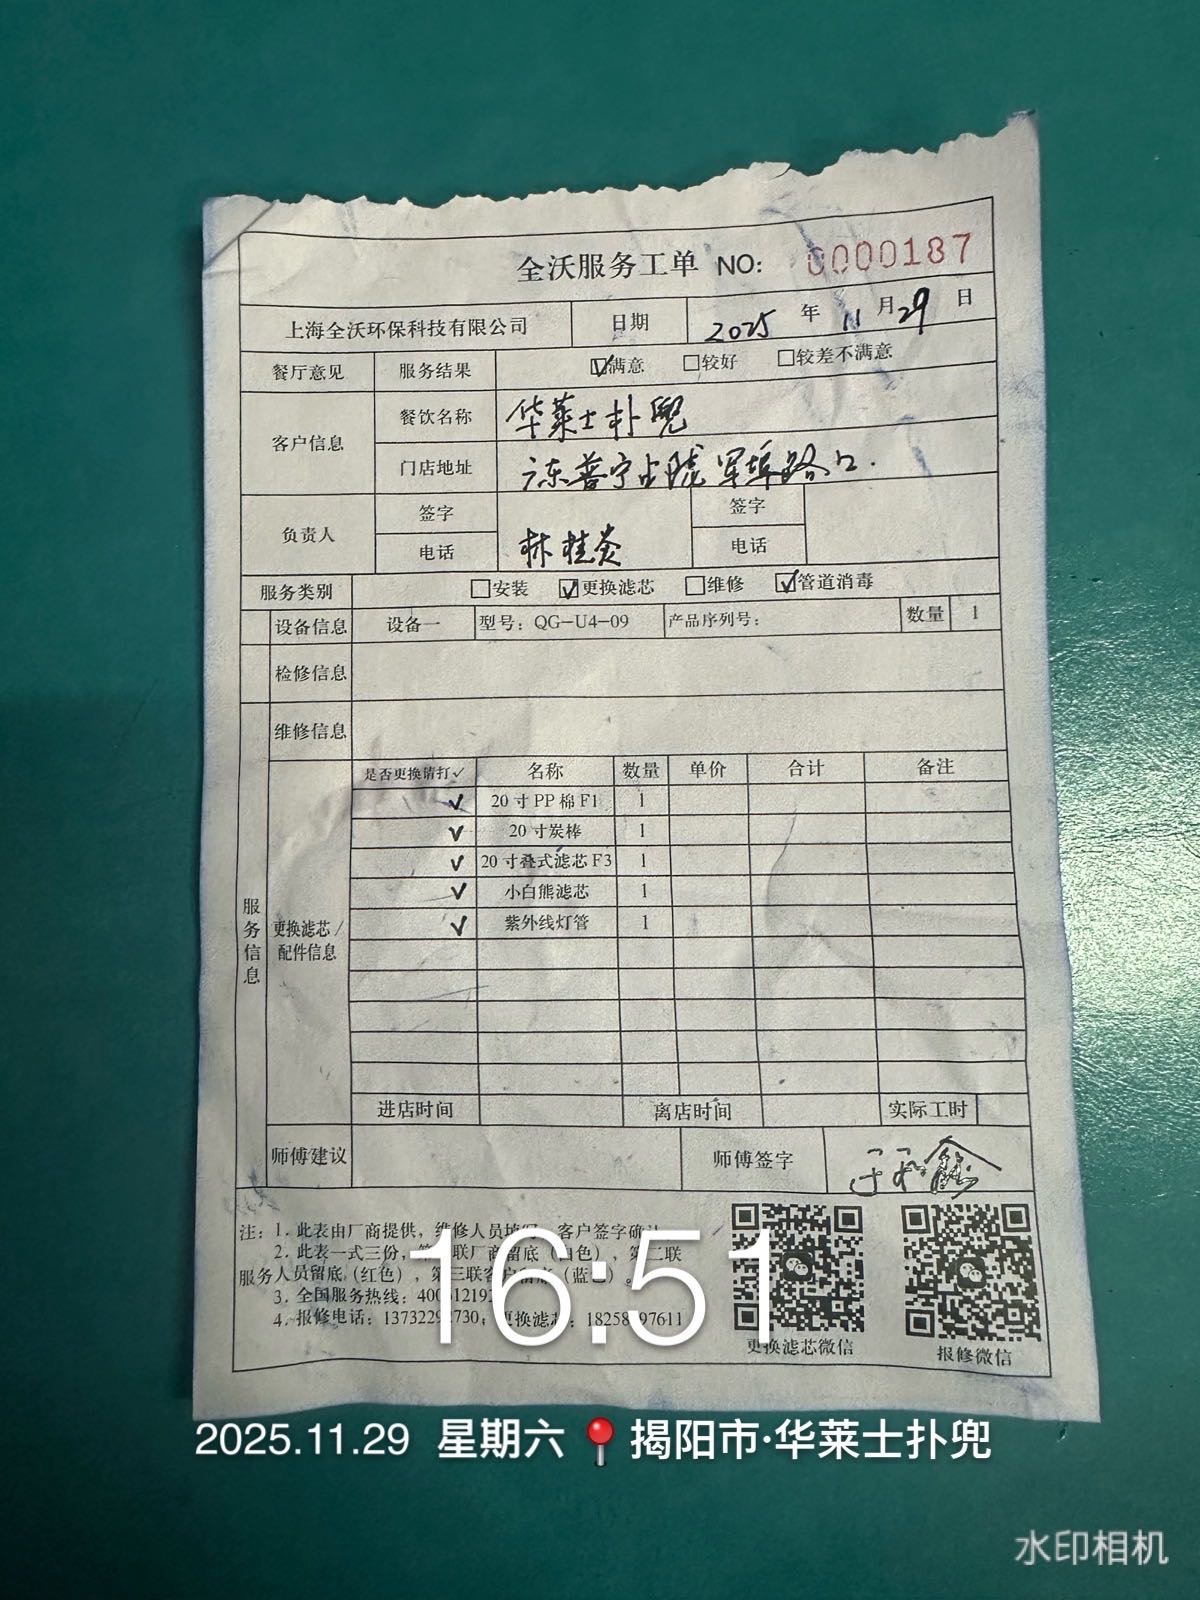 全沃服务工单 NO: 0000187
上海全沃环保科技有限公司 日期 2025 年 11 月 29 日
餐厅意见 服务结果 ☑满意 □较好 □较差不满意
客户信息 餐饮名称 华莱士扑兜
门店地址 广东普宁占陇军埠路口.
负责人 签字 签字
电话 林桂炎 电话
服务类别 □安装 ☑更换滤芯 □维修 ☑管道消毒
设备信息 设备一 型号: QG-U4-09 产品序列号: 数量 1
检修信息
维修信息
是否更换请打✓ 名称 数量 单价 合计 备注
✓ 20寸PP棉F1 1
✓ 20寸炭棒 1
✓ 20寸叠式滤芯F3 1
✓ 小白熊滤芯 1
✓ 紫外线灯管 1
服务信息
更换滤芯/
配件信息
进店时间 离店时间 实际工时
师傅建议 师傅签字
注: 1. 此表由厂商提供, 维修人员 客户签字确认
2. 此表一式三份, 联厂商留底(白色), 第二联
服务人员留底(红色), 第三联客 (蓝色)。
3. 全国服务热线:
4. 报修电话: 更换滤芯:
更换滤芯微信 报修微信
16:51
2025.11.29 星期六 揭阳市·华莱士扑兜
水印相机